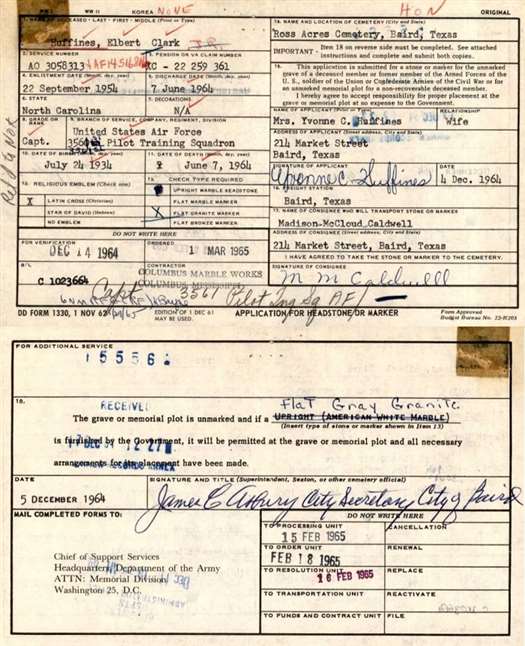 WW I
WW II
KOREA NONE
HON
ORIGINAL
1. NAME OF DECEASED - LAST - FIRST - MIDDLE (Print or Type)
Huffines, Elbert Clark JR.
2. SERVICE NUMBER
AO 3058313
3. PENSION OR VA CLAIM NUMBER
XC - 22 259 361
4. ENLISTMENT DATE (Month, day, year)
22 September 1954
5. DISCHARGE DATE (Month, day, year)
7 June 1964
6. STATE
North Carolina
7. DECORATIONS
N/A
8. GRADE OR RANK
Capt.
9. BRANCH OF SERVICE, COMPANY, REGIMENT, DIVISION
United States Air Force
Pilot Training Squadron
10. DATE OF BIRTH (Month, day, year)
July 24 1934
11. DATE OF DEATH (Month, day, year)
June 7, 1964
12. RELIGIOUS EMBLEM (Check one)
X LATIN CROSS (Christian)
STAR OF DAVID (Hebrew)
NO EMBLEM
13. CHECK TYPE REQUIRED
UPRIGHT MARBLE HEADSTONE
FLAT MARBLE MARKER
X FLAT GRANITE MARKER
FLAT BRONZE MARKER
DO NOT WRITE HERE
FOR VERIFICATION
DEC 14 1964
ORDERED
17 MAR 1965
B/L
C 1023664
CONTRACTOR
COLUMBUS MARBLE WORKS
COLUMBUS MISSISSIPPI
Capt 3561 Pilot Tng Sq AF
14. NAME AND LOCATION OF CEMETERY (City and State)
Ross Acres Cemetery, Baird, Texas
IMPORTANT - Item 18 on reverse side must be completed. See attached
instructions and complete and submit both copies.
15. This application is submitted for a stone or marker for the unmarked
grave of a deceased member or former member of the Armed Forces of the
U. S., soldier of the Union or Confederate Armies of the Civil War or for
an unmarked memorial plot for a non-recoverable deceased member.
I hereby agree to accept responsibility for proper placement at the
grave or memorial plot at no expense to the Government.
NAME OF APPLICANT (Print or Type)
Mrs. Yvonne C. Huffines
RELATIONSHIP
Wife
ADDRESS OF APPLICANT (Street address, City and State)
214 Market Street
Baird, Texas
SIGNATURE OF APPLICANT
Yvonne C. Huffines
DATE
4 Dec. 1964
16. FREIGHT STATION
Baird, Texas
17. NAME OF CONSIGNEE WHO WILL TRANSPORT STONE OR MARKER
Madison McCloud Caldwell
ADDRESS OF CONSIGNEE (Street address, City and State)
214 Market Street, Baird, Texas
I HAVE AGREED TO TAKE THE STONE OR MARKER TO THE CEMETERY.
SIGNATURE OF CONSIGNEE
M M Caldwell
DD FORM 1330, 1 NOV 62
EDITION OF 1 DEC 61
MAY BE USED.
APPLICATION FOR HEADSTONE OR MARKER
Form Approved
Budget Bureau No. 22-R205
FOR ADDITIONAL SERVICE
155561
RECEIVED
18. Flat Gray Granite
The grave or memorial plot is unmarked and if a UPRIGHT (AMERICAN WHITE MARBLE)
(Insert type of stone or marker shown in Item 13)
is furnished by the Government, it will be permitted at the grave or memorial plot and all necessary
arrangements for its placement have been made.
DATE
5 December 1964
SIGNATURE AND TITLE (Superintendent, Sexton, or other cemetery official)
James C Asbury City Secretary, City of Baird
MAIL COMPLETED FORMS TO:
Chief of Support Services
Headquarters, Department of the Army
ATTN: Memorial Division
Washington 25, D.C.
DO NOT WRITE HERE
TO PROCESSING UNIT
15 FEB 1965
CANCELLATION
TO ORDER UNIT
FEB 18 1965
RENEWAL
TO RESOLUTION UNIT
16 FEB 1965
REPLACE
TO TRANSPORTATION UNIT
REACTIVATE
TO FUNDS AND CONTRACT UNIT
FILE